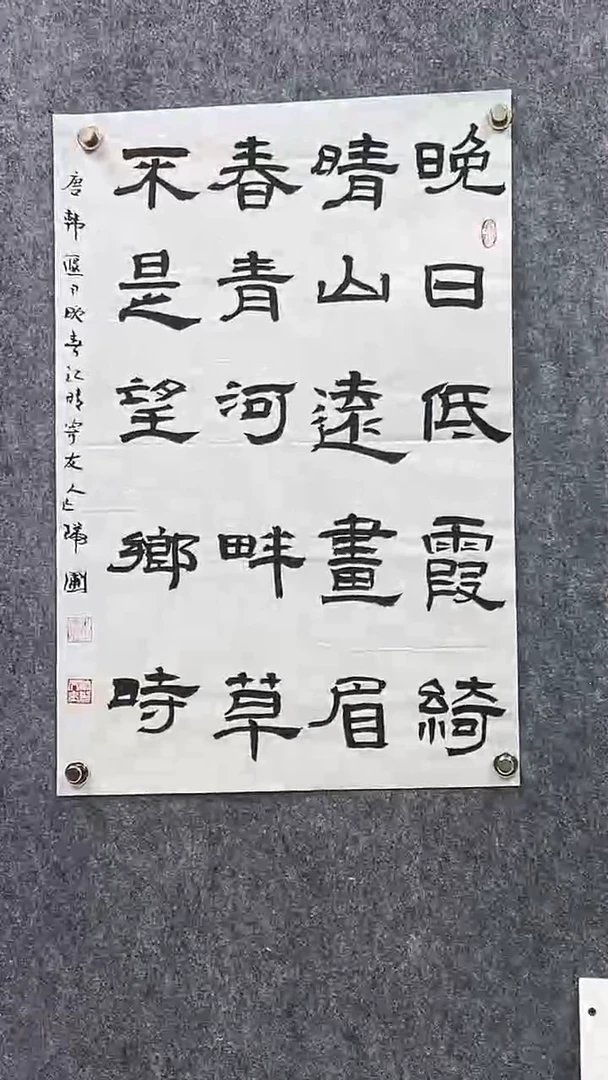 晚日低霞綺
晴山遠畫眉
春青河畔草
不是望鄉時
唐韓偓
晚春江晴寄友人